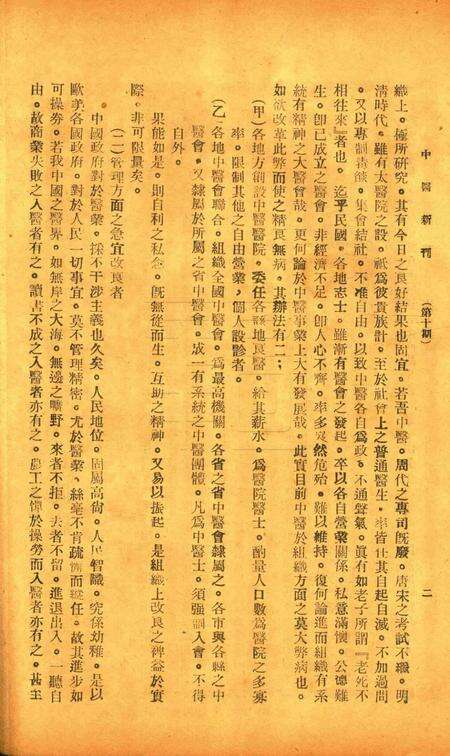 中醫新刊 (第十期) 二
織上。極所研究。其有今日之良好結果也固宜。若吾中醫。周代之專司旣廢。唐宋之考試不繼。明
淸時代。雖有太醫院之設。祇爲彼貴族計。至於社會上之普通醫生。率皆任其自起自滅。不加過問
。又以專制淫餘。集會結社。不准自由。以致中醫各自爲政。不通聲氣。眞有如老子所謂『老死不
相往來』者也。迄乎民國。各地志士。雖漸有醫會之發起。卒以各自營業關係。私意滿懷。公德難
生。卽已成立之醫會。非經濟不足。卽人心不齊。率多奄然危殆。難以維持。復何論進而組織有系
統有精神之大醫會哉。更何論於中醫事業上大有發展哉。此實目前中醫於組織方面之莫大弊病也。
如欲改革此弊而使之精良無病。其辦法有二；
(甲)各地方創設中醫醫院。委任各縣地良醫。給其薪水。爲醫院醫士。酌量人口數爲醫院之多寡
率。限制其他之自由營業。個人設診者。
(乙)各地中醫會聯合。組織全國中醫會。爲最高機關。各省之省中醫會隸屬之。各市與各縣之中
醫會。又隸屬於所屬之省中醫會。成一有系統之中醫團體。凡爲中醫士。須强制入會。不得
自外。
果能如是。則自利之私念。旣無從而生。互助之精神。又易以振起。是組織上改良之裨益於實
際。非可限量矣。
(二)管理方面之急宜改良者
中國政府對於醫藥。採不干涉主義也久矣。人民地位。固屬高尙。人民智識。究係幼稚。是以
歐美各國政府。對於人民一切事宜。莫不管理精密。尤於醫藥。絲毫不肯疏忽而縱任。故其進步如
可操券。若我中國之醫界。如無岸之大海。無邊之曠野。來者不拒。去者不留。進退出入。一聽自
由。故商業失敗之入醫者有之。讀書不成之入醫者亦有之。農工之憚於操勞而入醫者亦有之。甚至